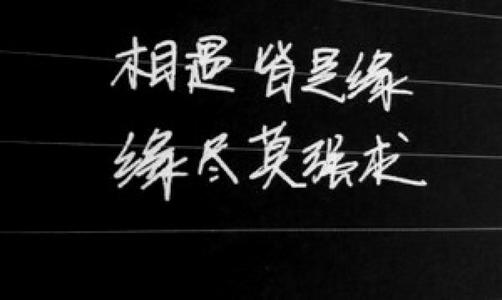 相遇皆是缘
缘尽莫强求